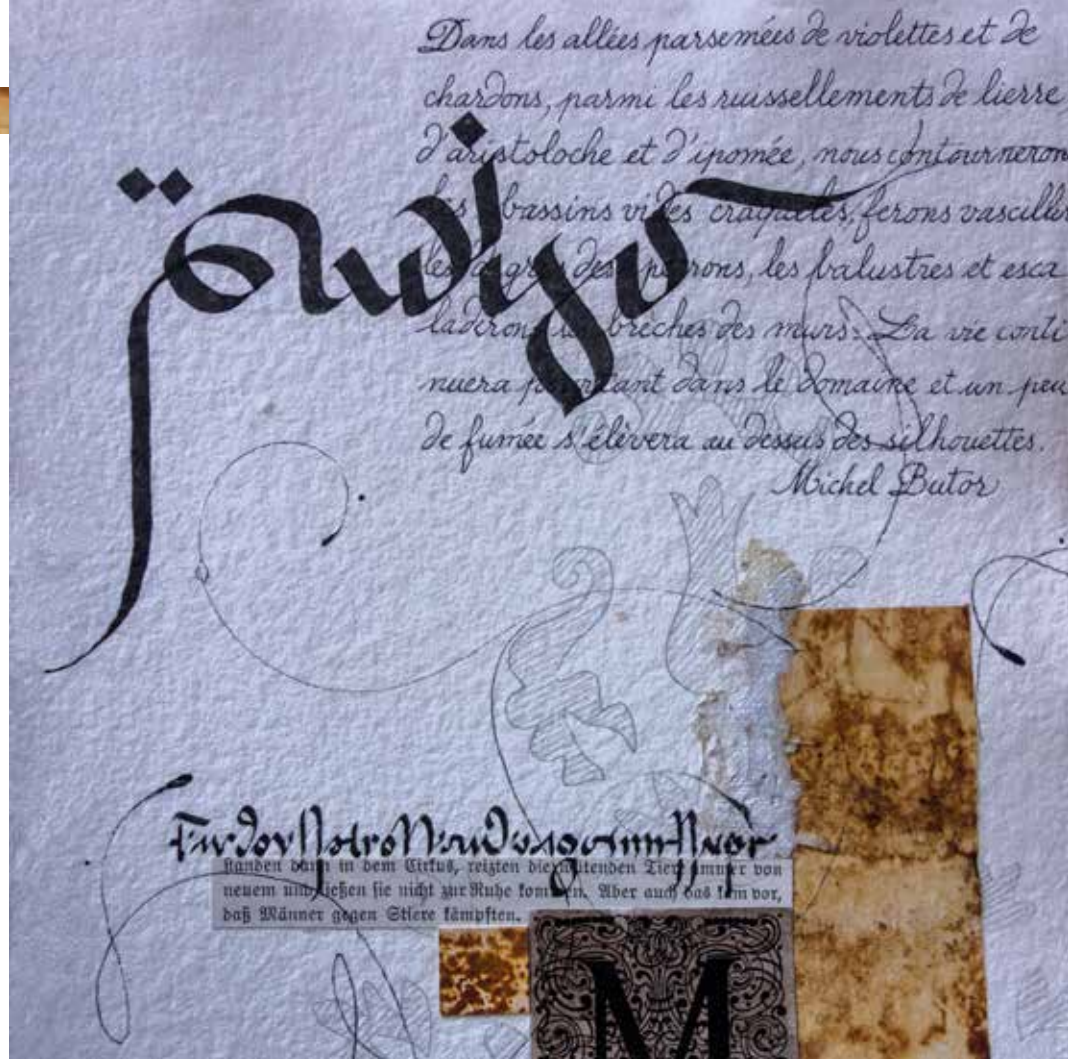 Dans les allées parsemées de violettes et de
chardons, parmi les ruissellements de lierre
d'aristoloche et d'ipomée, nous contourneron
les bassins vides craquelés, ferons vascill
les degrés des perrons, les balustres et esca
laderons les brèches des murs. La vie conti
nuera pourtant dans le domaine et un peu
de fumée s'élèvera au dessus des silhouettes.
Michel Butor
standen dann in dem Cirkus, reizten die wütenden Tiere immer von
neuem und ließen sie nicht zur Ruhe kommen. Aber auch das kam vor,
daß Männer gegen Stiere kämpften.
M